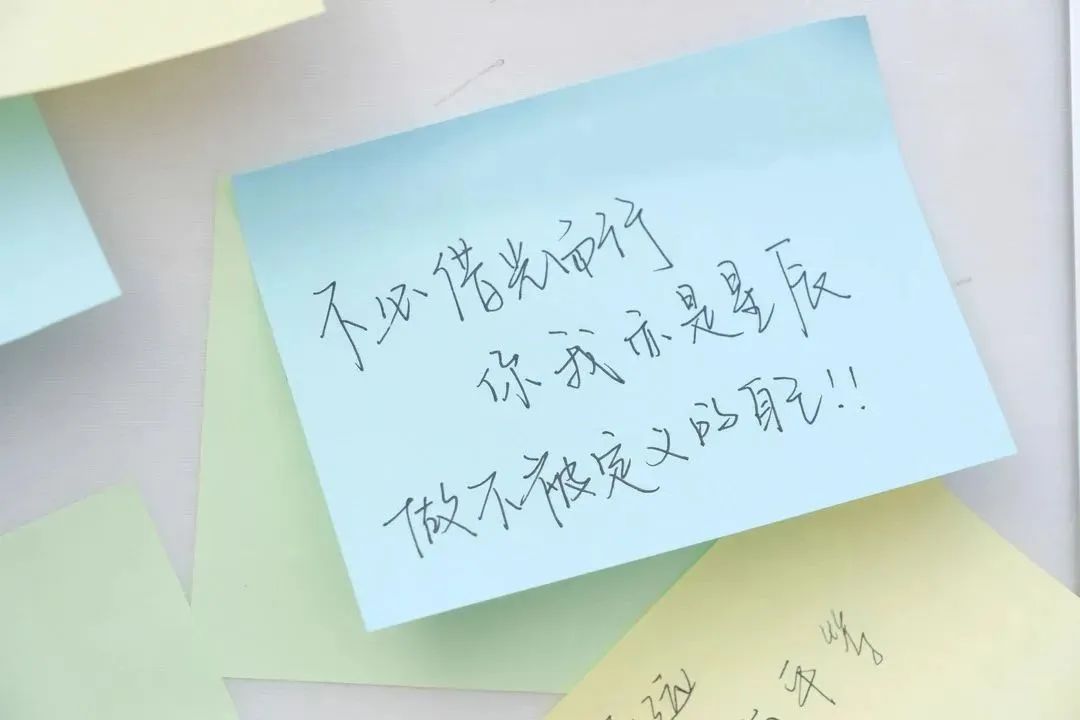 不必借光而行
你我亦是星辰
做不被定义的自己!!